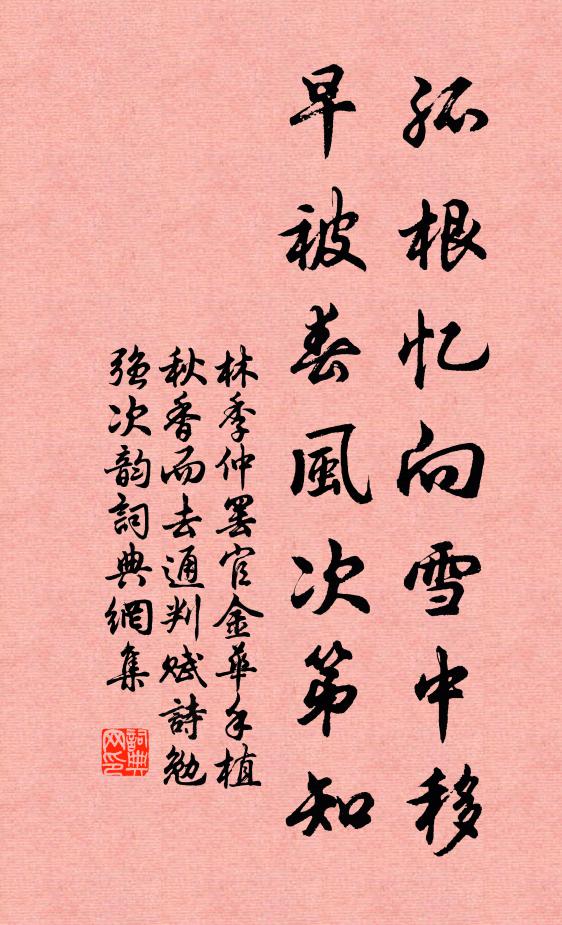 孤根忆向雪中移
早被春風次第知
林季仲罢官金華手植
秋香而去通判赋詩勉
強次韵詞典網集
詞典
网印